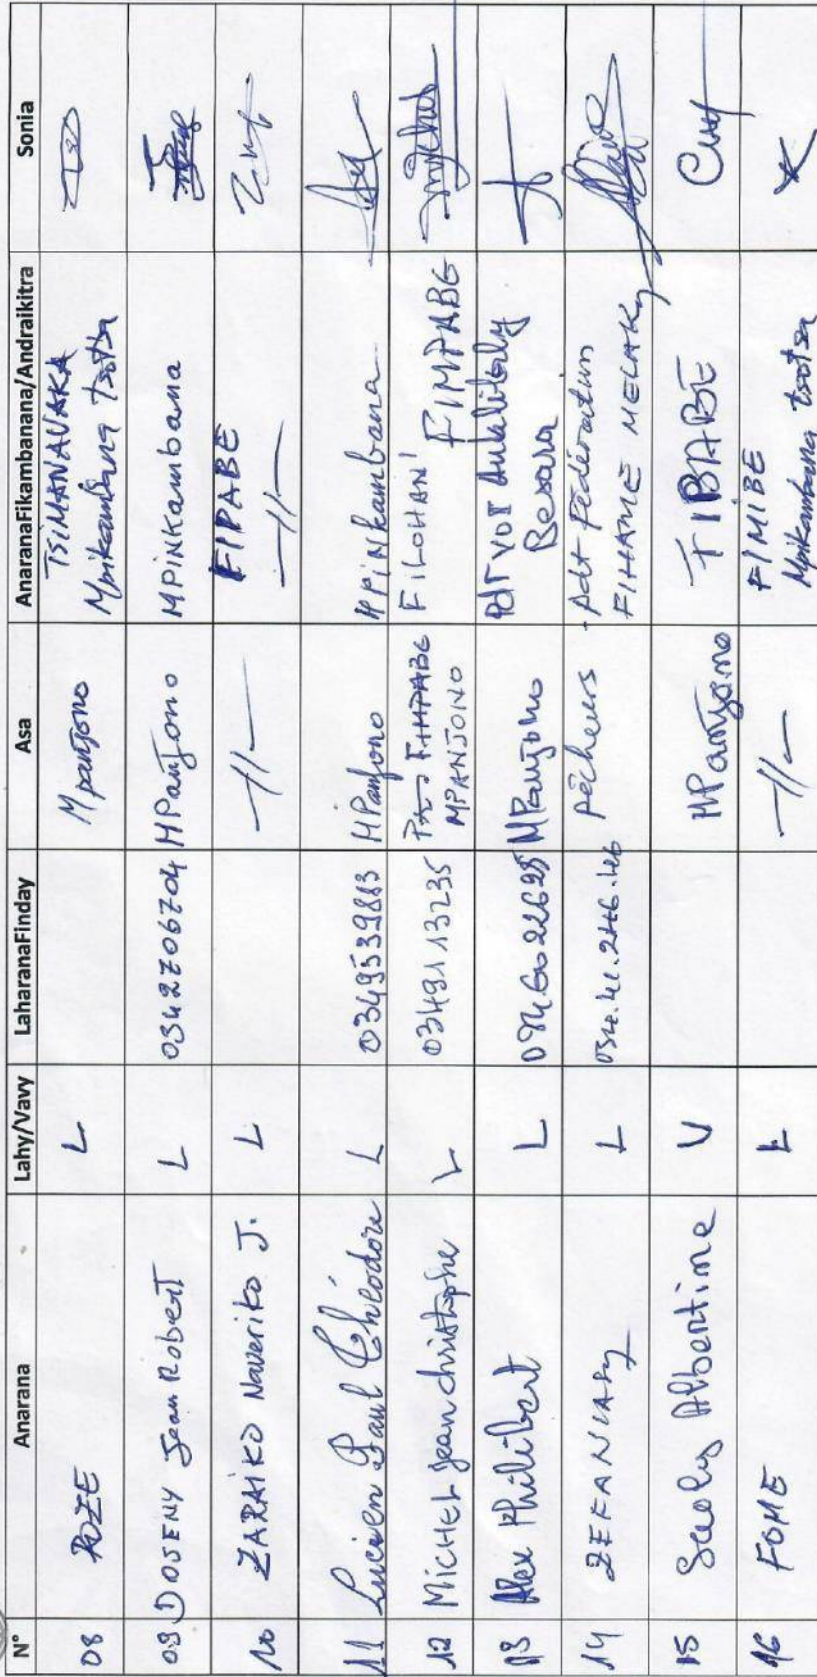 N° Anarana Lahy/Vavy LaharanaFinday Asa AnaranaFikambanana/Andraikitra Sonia
08 ROZE L Mpanjono TSIMANAVAKA
Mpikambana tsotsa
09 DOSENY Jean Robert L 0342706704 MPanjono MPINKambana
10 ZARAIKO Naveriko J. L -//- FIPABE
-//-
11 Lucien Paul Théodore L 0349539883 MPanjono MPiNkambana
12 MICHEL Jean christophe L 0349113235 FIMPABE FILOHANI
MPANJONO FIMPABE
13 Alex Philibert L MPanjono PdT VOI
Besara
14 ZEFANIASY L pêcheurs - Pdt Fédération
FIHAME MELAKY
15 Saoly Albertine V MPanjono FIBABE
16 FOME L -//- FIMIBE
Mpikambana tsotsa